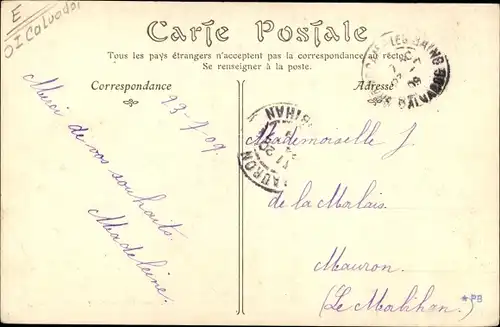 E
01 Calvados
Carte Postale
Tous les pays étrangers n'acceptent pas la correspondance au recto.
Se renseigner à la poste.
Correspondance
Adresse
23-7-09
Merci de vos souhaits.
Madeleine.
Mademoiselle J.
de la Malais
Mauron
(Le Morbihan)
MAURON
BIHAN
LES BAINS
09
*PB